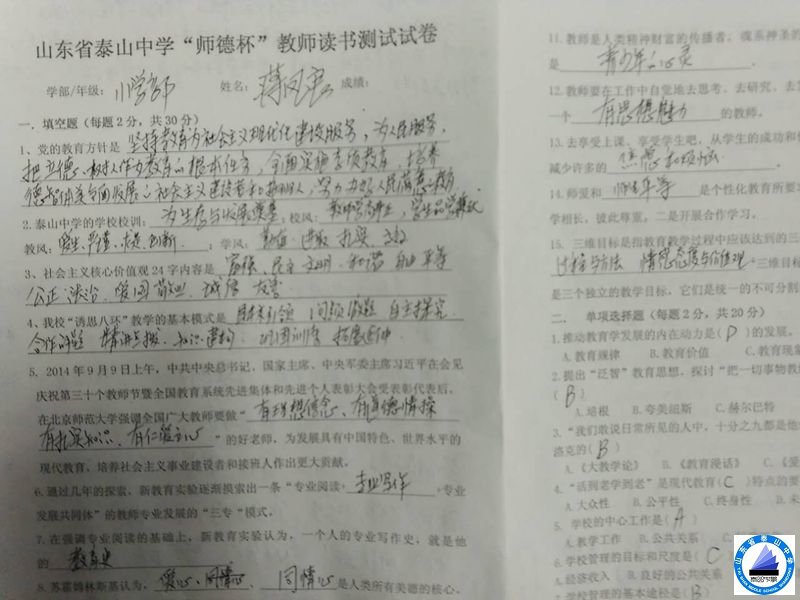 山东省泰山中学“师德杯”教师读书测试试卷
学部/年级：小学部 姓名： 成绩：
一．填空题（每题2分，共30分）
1、党的教育方针是 坚持教育为社会主义现代化建设服务，为人民服务，
把立德树人作为教育的根本任务，全面实施素质教育，培养
德智体美全面发展的社会主义建设者和接班人，努力办好人民满意的教育
2.泰山中学的学校校训： 为生存与发展奠基 校风：
教风：爱生、严谨、求是、创新 ；学风： 勤奋 进取
3、社会主义核心价值观24字内容是 富强、民主 文明 和谐 自由 平等
公正 法治、爱国 敬业、诚信 友善
4、我校“诱思八环”教学的基本模式是 目标引领 自主探究
合作 精讲点拨、知识建构 巩固训练 拓展延伸
5、2014年9月9日上午，中共中央总书记、国家主席、中央军委主席习近平在会见
庆祝第三十个教师节暨全国教育系统先进集体和先进个人表彰大会受表彰代表后，
在北京师范大学强调全国广大教师要做“有理想信念、有道德情操
有扎实知识、有仁爱之心”的好老师，为发展具有中国特色、世界水平的
现代教育，培养社会主义事业建设者和接班人作出更大贡献。
6.通过几年的探索，新教育实验逐渐摸索出一条“专业阅读+专业写作+专业
发展共同体”的教师专业发展的“三专“模式。
7、在强调专业阅读的基础上，新教育实验认为，一个人的专业写作史，就是他
的 教育史
8、苏霍姆林斯基认为， 同情心 是人类所有美德的核心。
11.教师是人类精神财富的传播者，魂系神圣的
是 青少年的心灵
12.教师要在工作中自觉地去思考、去研究、去
一个 有思想魅力 的教师。
13.去享受上课、享受学生吧，从学生的成功和
减少许多的 焦虑和烦恼
14.师爱和 师生平等 是个性化教育所要
学相长，彼此尊重，二是开展合作学习。
15．三维目标是指教育教学过程中应该达到的三
过程与方法 情感态度与价值观。三维目标
是三个独立的教学目标，它们是统一的不可分割
二．单项选择题（每题2分，共20分）
1.推动教育学发展的内在动力是（D）的发展。
A.教育规律 B.教育价值 C.教育现象
2.提出“泛智”教育思想，探讨“把一切事物教
（B）
A.培根 B.夸美纽斯 C.赫尔巴特
3.“我们敢说日常所见的人中，十分之九都是他
洛克的（B）
A.《大教学论》 B.《教育漫话》 C.《爱
4.“活到老学到老”是现代教育（C）特点的要
A.大众性 B.公平性 C.终身性 D.未
5．学校的中心工作是（A）
A.教学工作 B.公共关系
6.学校管理的目标和尺度是（C）
A.经济收入 B.良好的公共关系
学校管理的基本途径是（B）
山东省泰山中学